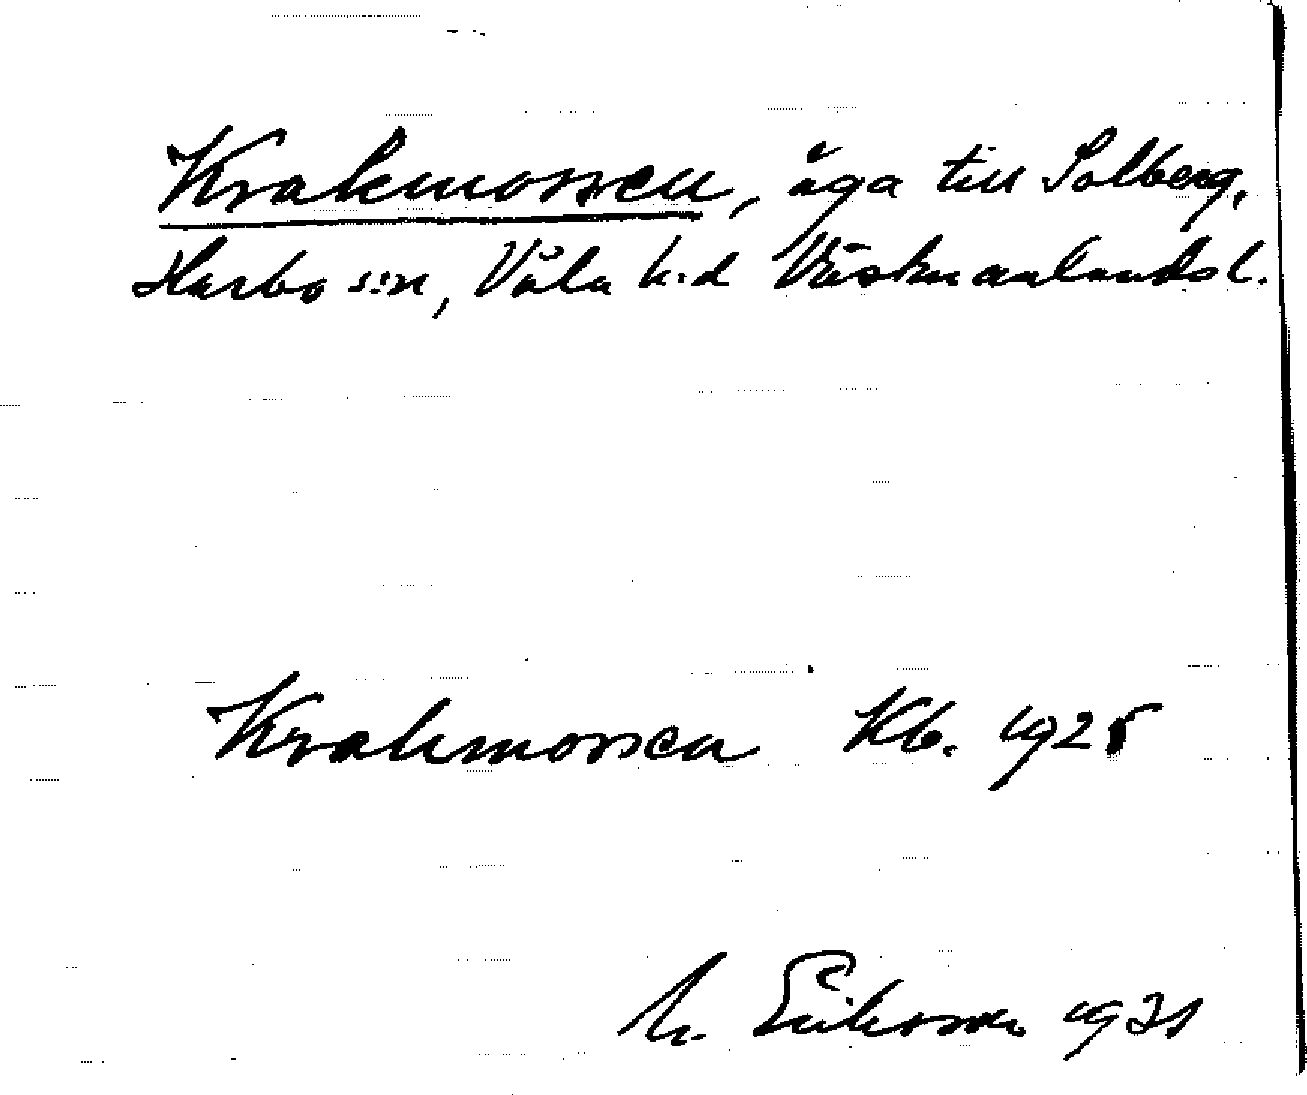 Krakmossen, äga till Solberg,
Harbo s:n, Våla h:d Västmanlands l.
Krakmossen Kb. 1925
M. Eriksson 1931